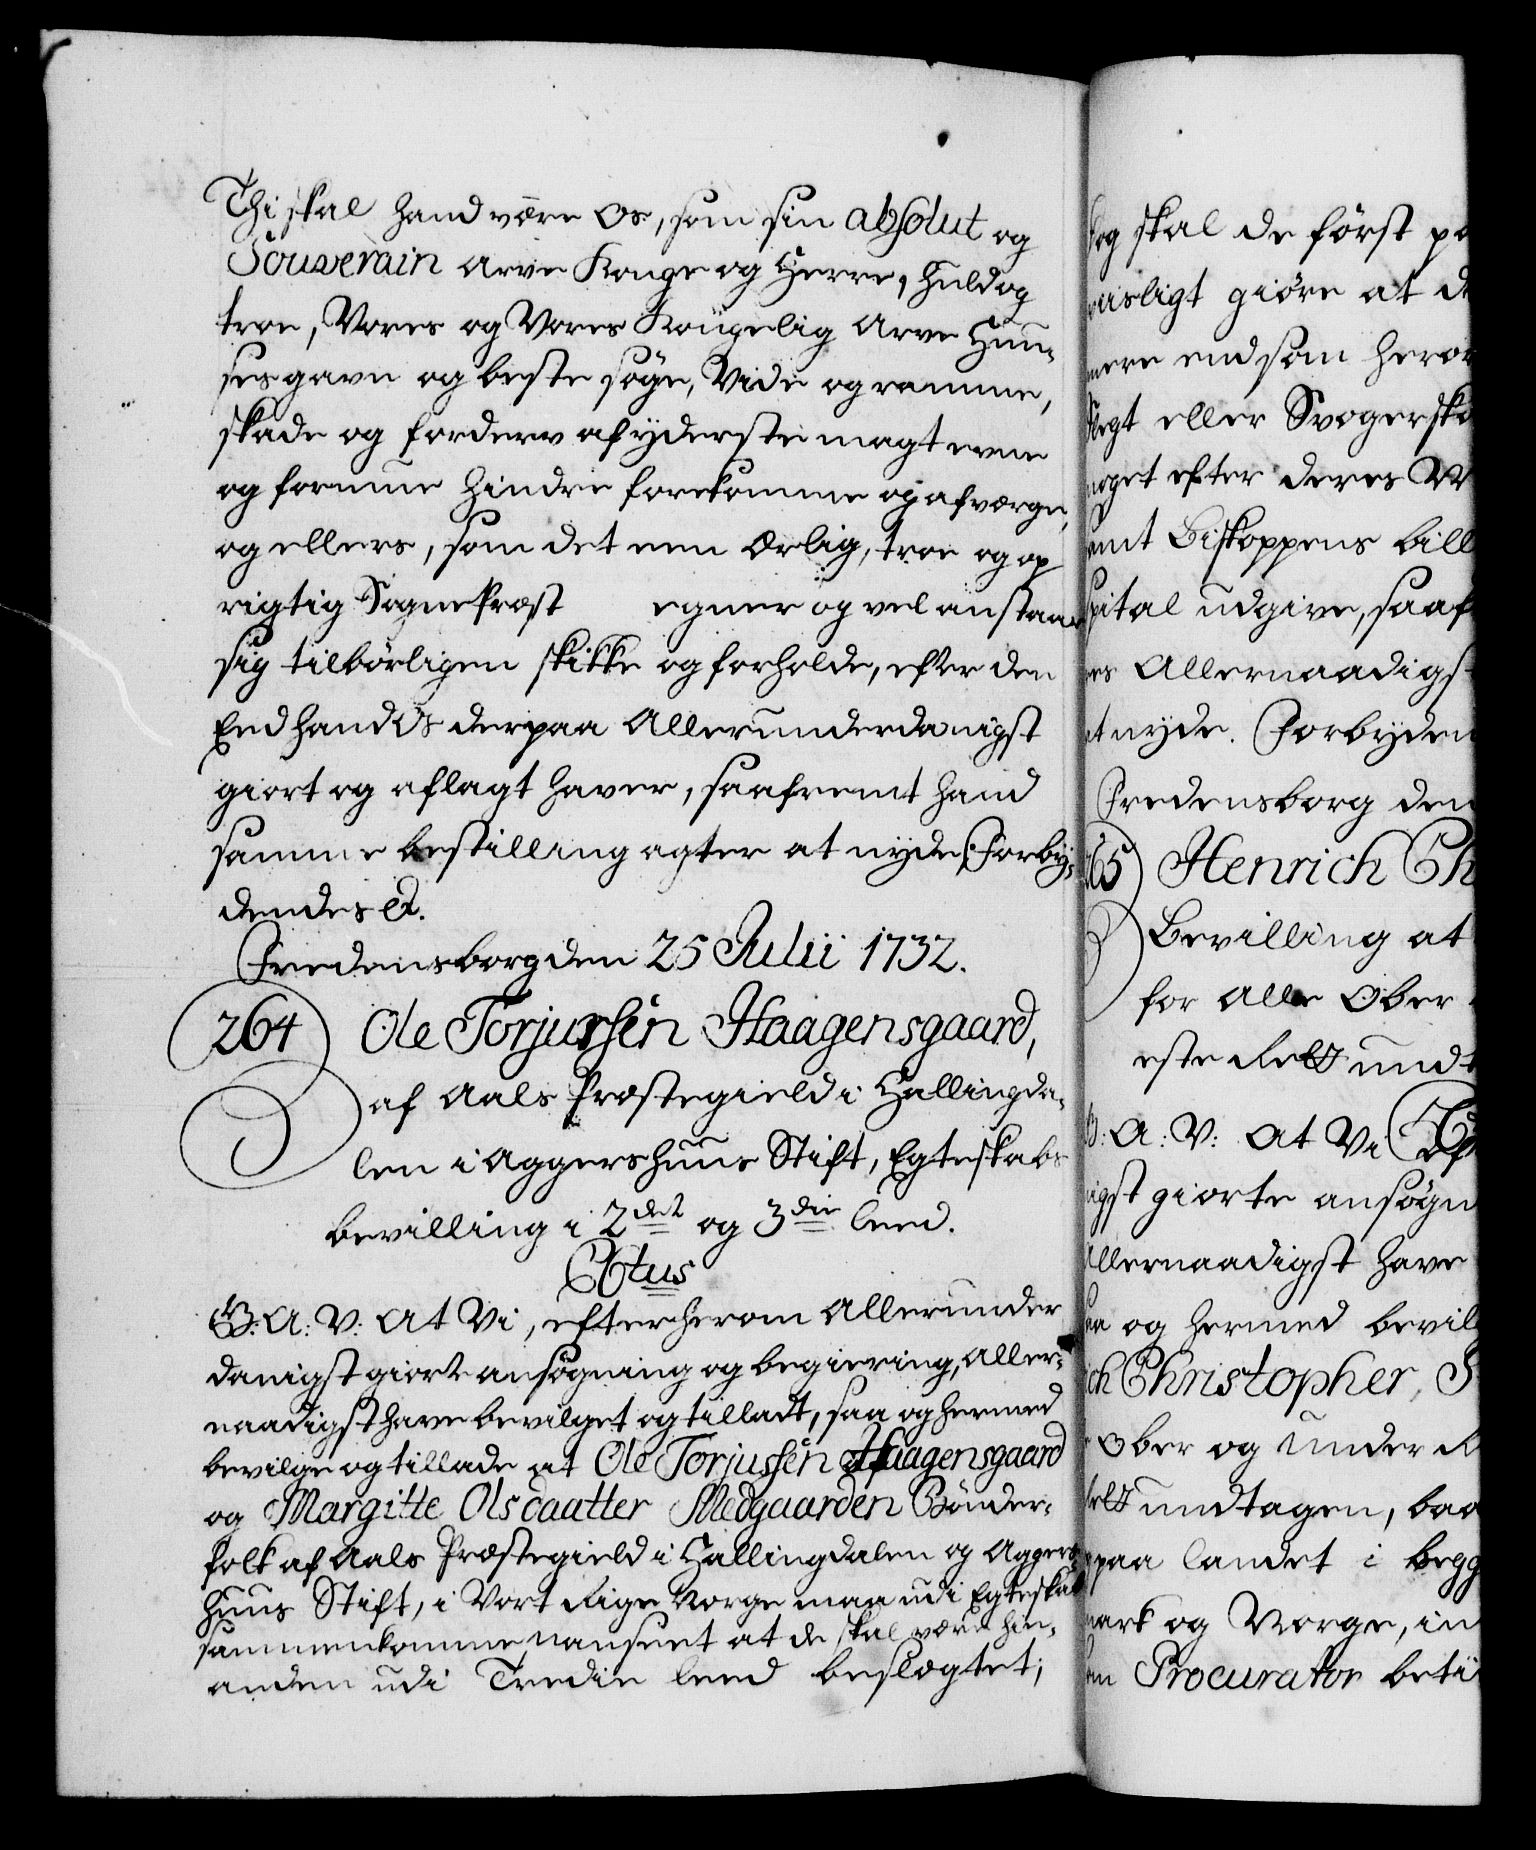 Thi skal hand være Os, som sin absolut og
Souverain Arve Konge og Herre, huld og
troe, Vores og Vores Kongelig Arve Huu-
ses gavn og beste søge, Vide og ramme,
skade og forderv af yderste magt evne
og formue hindre forekomme og afværge,
og ellers, som det een Ærlig, troe og op
rigtig SognePræst egner og vel anstaar
sig tilbørligen skikke og forholde, efter den
Eed hand Os derpaa Allerunderdanigst
giort og aflagt haver, saafremt hand
samme bestilling agter at nyde. Forby-
dendes &.
Fredensborg den 25 Julii 1732.
264 Ole Torjussen Haagensgaard,
af Aals Præstegield i Hallingda-
len i Aggershuus Stift, Egteskabs
bevilling i 2det og 3die leed.
G: A: V: At Vi, efter herom Allerunder
danigst giort ansøgning og begiering, Aller-
naadigst have bevilget og tilladt, saa og hermed
bevilge og tillade at Ole Torjussen Haagensgaard
og Margitte Olsdaatter Medgaarden Bønder-
folk af Aals Præstegield i Hallingdalen og Aggers-
huus Stift, i Vort Rige Norge maa udi Egteskab
sammenkomme uanseet at de skal være hin-
anden udi Tredie leed beslægtet;
og skal de først
viisligt giøre at
mere end som
Slegt eller
noget efter deres
samt Biskoppens
pital udgive,
Allernaadigst
at nyde. Forbyden
Fredensborg den
265 Henrich Ch
Bevilling at
for Alle Ober
este Rett undt
G: A: V: At Vi
nigst giorte ansøgn
Allernaadigst have
saa og hermed bevil
ich Christopher,
Ober og Under R
Rett undtagen, baa
paa landet i begg
mark og Norge,
Procurator beti